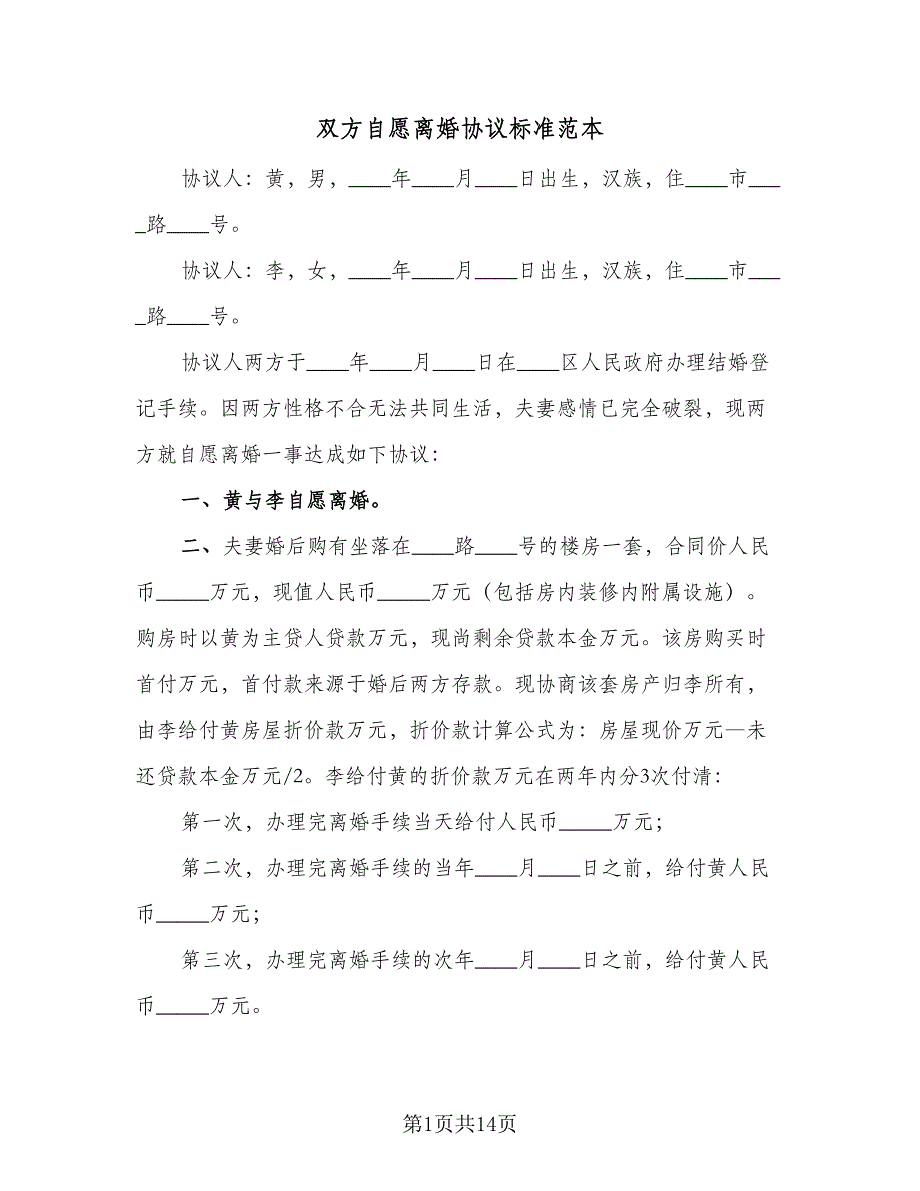 双方自愿离婚协议标准范本
协议人：黄，男，____年____月____日出生，汉族，住____市___
_路____号。
协议人：李，女，____年____月____日出生，汉族，住____市___
_路____号。
协议人两方于____年____月____日在____区人民政府办理结婚登
记手续。因两方性格不合无法共同生活，夫妻感情已完全破裂，现两
方就自愿离婚一事达成如下协议：
一、黄与李自愿离婚。
二、夫妻婚后购有坐落在____路____号的楼房一套，合同价人民
币_____万元，现值人民币_____万元（包括房内装修内附属设施）。
购房时以黄为主贷人贷款万元，现尚剩余贷款本金万元。该房购买时
首付万元，首付款来源于婚后两方存款。现协商该套房产归李所有，
由李给付黄房屋折价款万元，折价款计算公式为：房屋现价万元—未
还贷款本金万元/2。李给付黄的折价款万元在两年内分3次付清：
第一次，办理完离婚手续当天给付人民币_____万元；
第二次，办理完离婚手续的当年____月____日之前，给付黄人民
币_____万元；
第三次，办理完离婚手续的次年____月____日之前，给付黄人民
币_____万元。
第1页共14页